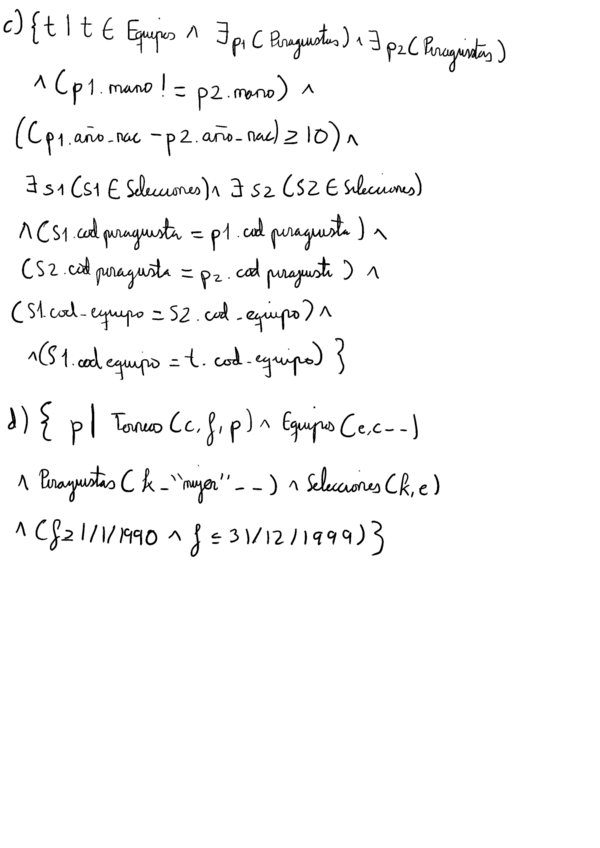 c) { t | t ∈ Equipos ∧ ∃ p1 ( Piraguistas ) ∧ ∃ p2 ( Piraguistas )
∧ ( p1 . mano != p2 . mano ) ∧
( ( p1 . año_nac - p2 . año_nac ) ≥ 10 ) ∧
∃ s1 ( S1 ∈ Selecciones ) ∧ ∃ s2 ( S2 ∈ Selecciones )
∧ ( S1 . cod piraguista = p1 . cod piraguista ) ∧
( S2 . cod piraguista = p2 . cod piraguista ) ∧
( S1 . cod - equipo = S2 . cod - equipo ) ∧
∧ ( S1 . cod equipo = t . cod - equipo ) }
d) { p | Torneo ( c , f , p ) ∧ Equipos ( e , c - - )
∧ Piraguistas ( k - "mujer" - - ) ∧ Selecciones ( k , e )
∧ ( f ≥ 1/1/1990 ∧ f ≤ 31/12/1999 ) }